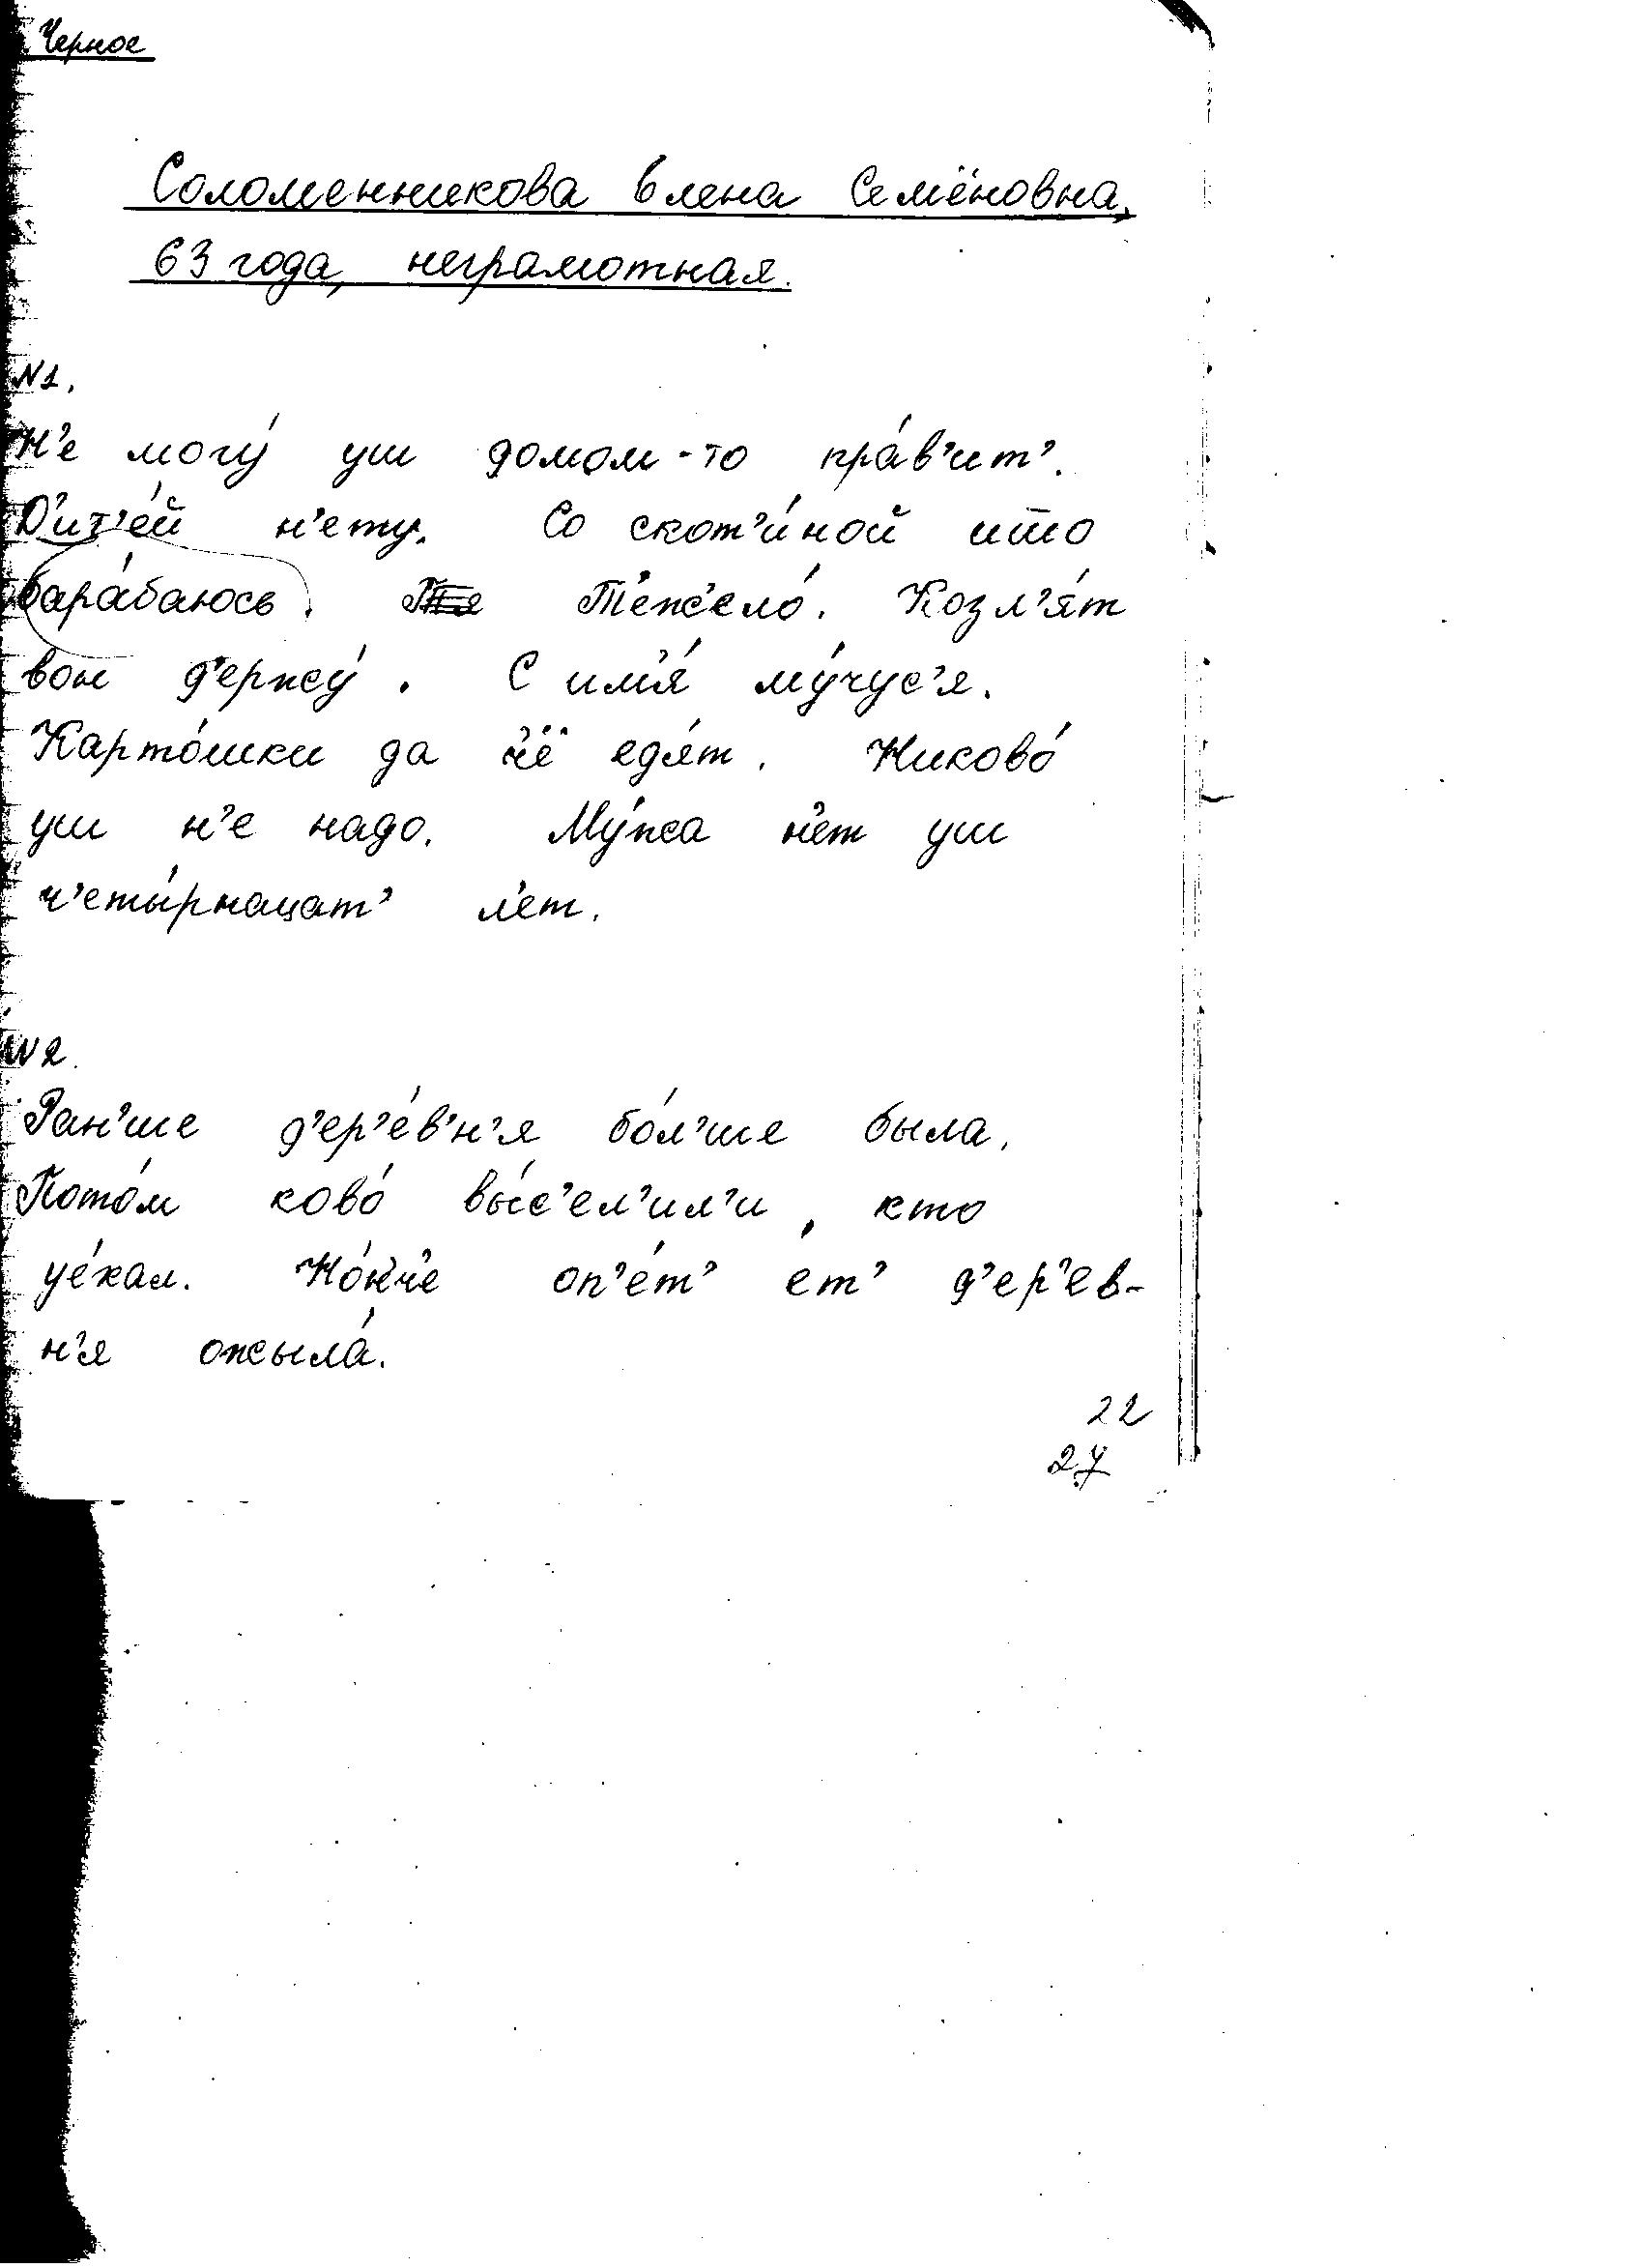 Черное
Соломенникова Елена Семёновна,
63 года, неграмотная.
№1.
Н'е могу́ уш домом-то пра́в'ит'.
Д'ит'е́й н'ету. Со скот'и́ной што
бара́баюсь. Т'ежело́. Козл'я́т
вон д'ержу́. С им'я́ му́чус'я.
Карто́шки да ч'ё едя́т. Никово́
уш н'е надо. Му́жа н'ет уш
ч'еты́рнацат' л'ет.
№2.
Ран'ше д'ер'е́в'н'я бо́л'ше была.
Пото́м ково́ вы́с'ел'ил'и, кто
уе́хал. Но́н'ч'е оп'е́т' ет' д'ер'ев-
н'я ожыла́.
22
27